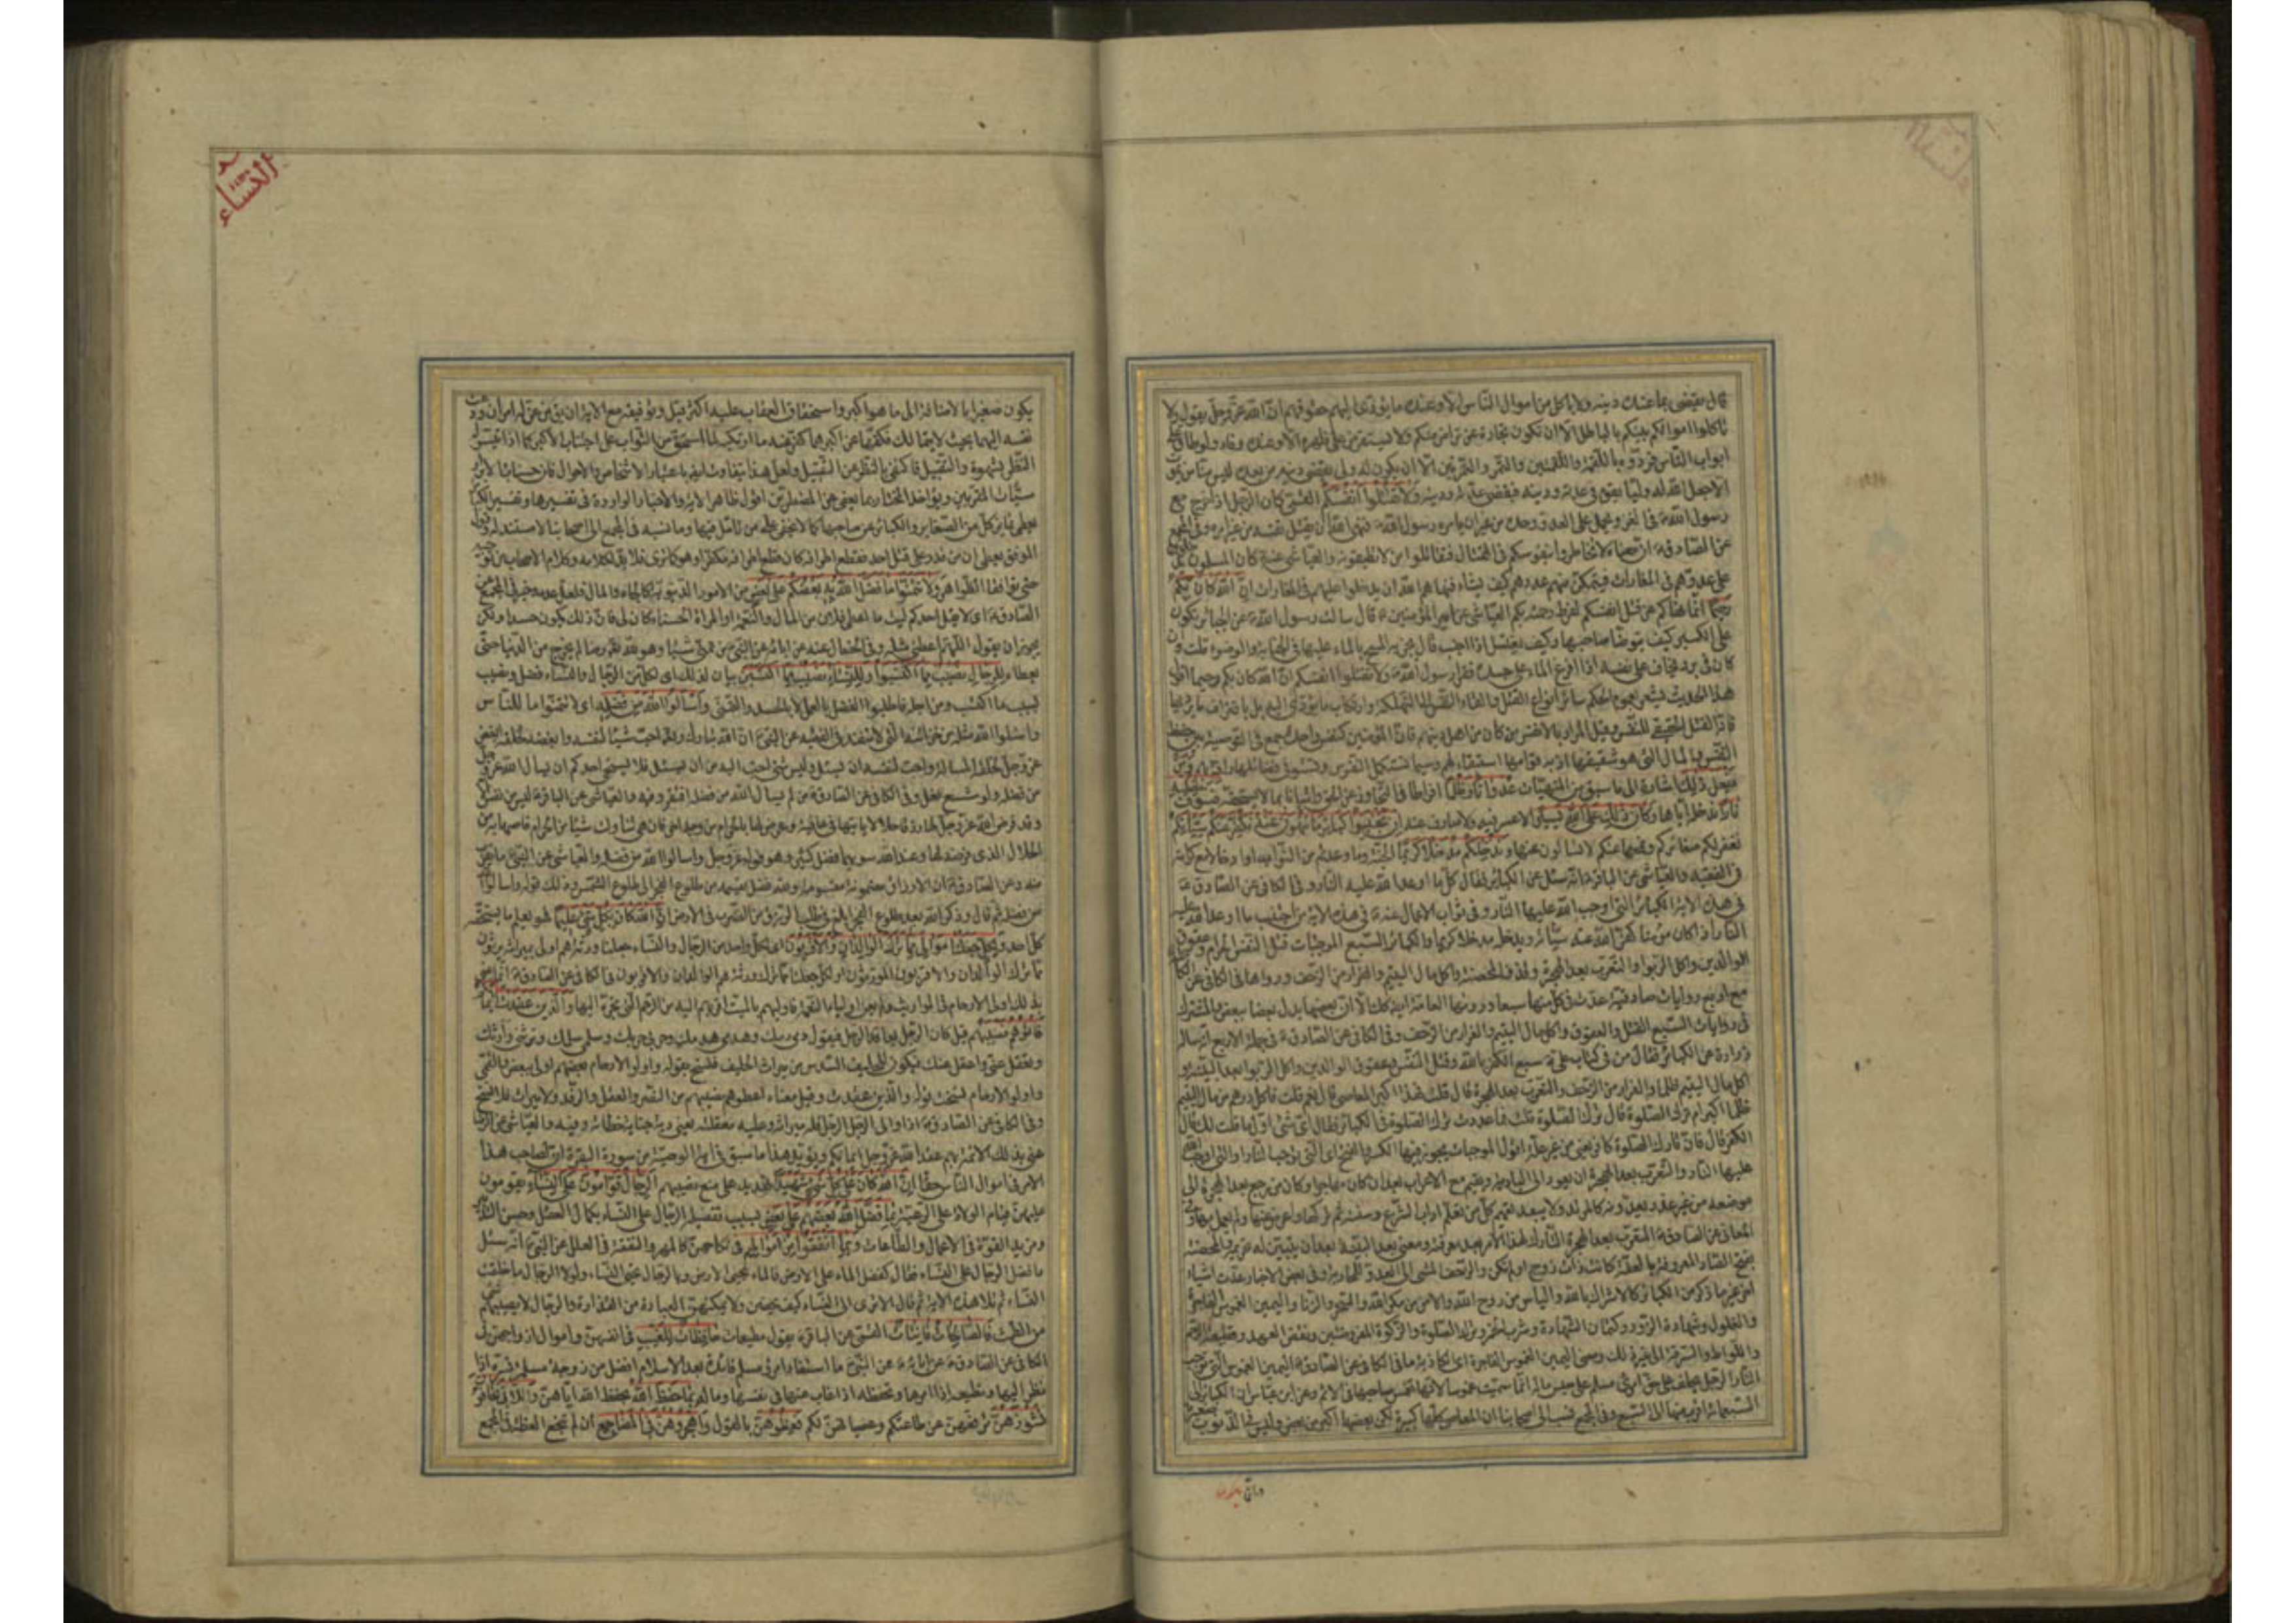 النساء
قال يقضي بما عنده دينه ولا ياكل من اموال الناس الا وعنده ما يؤدي اليهم حقوقهم ان الله عز وجل يقول ولا
تاكلوا اموالكم بينكم بالباطل الا ان تكون تجارة عن تراض منكم ولا يستقرض على ظهره الا وعنده وفاء ولو طاف على
ابواب الناس فردوه باللقمة واللقمتين والتمرة والتمرتين الا ان يكون له ولي يقضي دينه من بعده ليس منا من يموت
الا جعل الله له وليا يقوم في عدته ودينه فيقضي عدته ودينه ولا تقتلوا انفسكم القمي كان الرجل اذا خرج مع
رسول الله ص في الغزو يحمل على العدو وحده من غير ان يامره رسول الله ص فنهى الله ان يقتل نفسه من غير امره وفي المجمع
عن الصادق ع ان معناه لا تخاطروا بنفوسكم في القتال فتقاتلوا من لا تطيقونه والعياشي عنه ع كان المسلمون يدخلون
على عدوهم في المغارات فيتمكن منهم عدوهم فيقتلهم كيف يشاء فنهاهم الله ان يدخلوا عليهم في المغارات ان الله كان بكم
رحيما انما نهاكم عن قتل انفسكم لفرط رحمته بكم العياشي عن امير المؤمنين ع قال سالت رسول الله ص عن الجبائر يكون
على الكسير كيف يتوضأ صاحبها وكيف يغتسل اذا اجنب قال يجزيه المسح بالماء عليها في الجنابة والوضوء قلت وان
كان في برد يخاف على نفسه اذا افرغ الماء على جسده فقرأ رسول الله ص ولا تقتلوا انفسكم ان الله كان بكم رحيما اقول
هذا الحديث يشعر بعموم الحكم سائر انواع القتل والقاء النفس الى التهلكة وارتكاب ما يؤدي اليه بل باقتراف ما يرديها
فانه القتل الحقيقي للنفس وقيل المراد بالانفس من كان من اهل دينهم فان المؤمنين كنفس واحدة جمع في التوصية بين حفظ
النفس والمال الذي هو شقيقها اذ به قوامها استبقاء لهم ريثما تستكمل النفوس وتستوفي فضائلها ومن
يفعل ذلك اشارة الى ما سبق من المنهيات عدوانا وظلما افراطا في التجاوز عن الحق واتيانا بما لا يستحقه فسوف نصليه
نارا ندخله اياها وكان ذلك على الله يسيرا لا عسر فيه ولا صارف عنه ان تجتنبوا كبائر ما تنهون عنه نكفر عنكم سيئاتكم
نغفر لكم صغائركم ونمحها عنكم لا تسألون عنها وندخلكم مدخلا كريما الجنة وما وعدتم من الثواب او ادخالا مع كرامة
في الفقيه والعياشي عن الباقر ع انه سئل عن الكبائر فقال كل ما اوعد الله عليه النار وفي الكافي عن الصادق ع
في هذه الاية الكبائر التي اوجب الله عليها النار وفي ثواب الاعمال عنه ع في هذه الاية من اجتنب ما اوعد الله عليه
النار اذا كان مؤمنا كفر الله عنه سيئاته ويدخله مدخلا كريما والكبائر السبع الموجبات قتل النفس الحرام وعقوق
الوالدين واكل الربوا والتعرب بعد الهجرة وقذف المحصنة واكل مال اليتيم والفرار من الزحف ورواها في الكافي عن الكاظم
مع اربع روايات صادقية عدت في كل منها سبعا ورواها العامة ايضا كذلك الا ان بعضها بدل بعضا ببعض والمشترك
في روايات السبع القتل والعقوق واكل مال اليتيم والفرار من الزحف وفي الكافي عن الصادق ع في جملة الاربع انه ساله
زرارة عن الكبائر فقال هن في كتاب علي ع سبع الكفر بالله وقتل النفس وعقوق الوالدين واكل الربوا بعد البينة و
اكل مال اليتيم ظلما والفرار من الزحف والتعرب بعد الهجرة قال قلت فهذا اكبر المعاصي قال نعم قلت فاكل درهم من مال اليتيم
ظلما اكبر ام ترك الصلوة قال ترك الصلوة قلت فما عددت ترك الصلوة في الكبائر فقال اي شيء اول ما قلت لك قال
الكفر قال فان تارك الصلوة كافر يعني من غير علة اقول الموجبات يجوز فيها الكسر والفتح اي التي توجب النار او التي اوجب الله
عليها النار والتعرب بعد الهجرة ان يعود الى البادية ويقيم مع الاعراب بعد ان كان مهاجرا وكان من رجع بعد الهجرة الى
موضعه من غير عذر يعدونه كالمرتد ولا يبعد تعميمه لكل من تعلم اداب الشرع وسننه ثم تركها واعرض عنها ولم يعمل بها وفي
المعاني عن الصادق ع المتعرب بعد الهجرة التارك لهذا الامر بعد معرفته ومعنى بعد البينة بعد ان يتبين له تحريمه والمحصنة
بفتح الصاد المعروفة بالعفة كانت ذات زوج او لم تكن والزحف المشي الى العدو للمحاربة وفي بعض الاخبار عدت اشياء
اخر غير ما ذكر من الكبائر كالاشراك بالله والياس من روح الله والامن من مكر الله والسحر والزنا واليمين الغموس الفاجرة
والغلول وشهادة الزور وكتمان الشهادة وشرب الخمر وترك الصلوة والزكوة المفروضتين ونقض العهد وقطيعة الرحم
واللواط والسرقة الى غير ذلك ومعنى اليمين الغموس الفاجرة اي الكاذبة ما في الكافي عن الصادق ع اليمين الغموس التي توجب
النار الرجل يحلف على حق امرئ مسلم على حبس ماله انما سميت غموسا لانها تغمس صاحبها في الاثم وعن ابن عباس ان الكبائر الى
السبعمائة اقرب منها الى السبع وفي المجمع نسب الى اصحابنا ان المعاصي كلها كبيرة لكن بعضها اكبر من بعض وليس في الذنوب صغيرة
وانما يكون
النساء
يكون صغيرا بالاضافة الى ما هو اكبر واستحقاق العقاب عليه اكثر قيل وتوفيقه مع الاية ان يقال من عن له امران ودعت
نفسه اليهما بحيث لا يتمالك فكفها عن اكبرهما كفر عنه ما ارتكبه لما استحق من الثواب على اجتناب الاكبر كما اذا تيسر له
النظر بشهوة والتقبيل فاكتفى بالنظر عن التقبيل ولعل هذا يتفاوت ايضا باعتبار الاشخاص والاحوال فان حسنات الابرار
سيئات المقربين ويؤاخذ المختار بما يعفى عن المضطرين اقول ظاهر الاية والاخبار الواردة في تفسيرها وتفسير الكبائر
يعطي تمايز كل من الصغاير والكبائر عن صاحبها كما لا يخفى على من تأمل فيها وما نسبه في المجمع الى اصحابنا لا مستند له وقول
الموفق يعطي ان من قدر على قتل احد فقطع اطرافه كان قطع اطرافه مكفرا وهو كما ترى فلا بد لكلامه وكلام الاصحاب من توجيه
حتى يوافقا الظواهر ولا تتمنوا ما فضل الله به بعضكم على بعض من الامور الدنيوية كالجاه والمال فلعل عدمه خير في المجمع عن
الصادق ع اي لا يقل احدكم ليت ما اعطي فلان من المال والنعمة او المراة الحسناء كان لي فان ذلك يكون حسدا ولكن
يجوز ان يقول اللهم اعطني مثله وفي الخصال عنه عن ابائه عن النبي ص من تمنى شيئا وهو لله تعالى رضا لم يخرج من الدنيا حتى
يعطاه للرجال نصيب مما اكتسبوا وللنساء نصيب مما اكتسبن بيان لذلك اي لكل من الرجال والنساء فضل ونصيب
بسبب ما اكتسب ومن اجله فاطلبوا الفضل بالعمل لا بالحسد والتمني واسألوا الله من فضله اي لا تتمنوا ما للناس
واسئلوا الله مثله من خزائنه التي لا تنفد في الفقيه عن النبي ص ان الله تبارك وتعالى احب شيئا لنفسه وابغضه لخلقه ابغض
عز وجل لخلقه المسالة واحب لنفسه ان يسئل وليس شيء احب اليه من ان يسئل فلا يستحيي احدكم ان يسال الله عز وجل
من فضله ولو شسع نعل وفي الكافي عن الصادق ع من لم يسال الله من فضله افتقر وفيه والعياشي عن الباقر ع ليس من نفس الا
وقد فرض الله عز وجل لها رزقا حلالا ياتيها في عافية وعرض لها بالحرام من وجه اخر فان هي تناولت شيئا من الحرام قاصها به من
الحلال الذي فرض لها وعند الله سواهما فضل كثير وهو قوله عز وجل واسالوا الله من فضله والعياشي عن النبي ص ما يقرب
منه وعن الصادق ع ان الارزاق مضمونة مقسومة ولله فضل يقسمه من طلوع الفجر الى طلوع الشمس وذلك قوله واسالوا الله
من فضله ثم قال وذكر الله بعد طلوع الفجر ابلغ في طلب الرزق من الضرب في الارض ان الله كان بكل شيء عليما فهو يعلم ما يستحقه
كل احد ولكل جعلنا موالي مما ترك الوالدان والاقربون اي لكل واحد من الرجال والنساء جعلنا ورثة هم اولى بميراثه يرثون
مما ترك الوالدان والاقربون الموروثون او لكل جعلنا مما ترك ورثة هم الوالدان والاقربون في الكافي عن الصادق ع انما عنى
بذلك اولي الارحام في المواريث ولم يعن اولياء النعمة فاولاهم بالميت اقربهم اليه من الرحم التي تجره اليها والذين عقدت ايمانكم
فاتوهم نصيبهم قيل كان الرجل يعاقد الرجل فيقول دمي دمك وهدمي هدمك وحربي حربك وسلمي سلمك وترثني وارثك
وتعقل عني واعقل عنك فيكون للحليف السدس من ميراث الحليف فنسخ بقوله واولوا الارحام بعضهم اولى ببعض والقمي
واولوا الارحام نسخت قوله والذين عقدت وقيل معناه اعطوهم نصيبهم من النصر والعقل والرفد ولا ميراث فلا نسخ
وفي الكافي عن الصادق ع اذا والى الرجل الرجل فله ميراثه وعليه معقلته يعني دية جناية خطائه وفيه والعياشي عن الرضا
عنى بذلك الائمة ع بهم عقد الله عز وجل ايمانكم ويؤيد هذا ما سبق في اية الوصية من سورة البقرة ان لصاحب هذا
الامر في اموال الناس حقا ان الله كان على كل شيء شهيدا تهديد على منع نصيبهم الرجال قوامون على النساء يقومون
عليهن قيام الولاة على الرعية بما فضل الله بعضهم على بعض بسبب تفضيله الرجال على النساء بكمال العقل وحسن التدبير
ومزيد القوة في الاعمال والطاعات وبما انفقوا من اموالهم في نكاحهن كالمهر والنفقة في العلل عن النبي ص انه سئل
ما فضل الرجال على النساء فقال كفضل الماء على الارض فبالماء تحيى الارض وبالرجال تحيى النساء ولولا الرجال ما خلقت
النساء ثم تلا هذه الاية ثم قال الا ترى الى النساء كيف يحضن ولا يمكنهن العبادة من القذارة والرجال لا يصيبهم شيء
من الطمث فالصالحات قانتات القمي عن الباقر ع يقول مطيعات حافظات للغيب في انفسهن واموال ازواجهن في
الكافي عن الصادق ع عن ابائه ع عن النبي ص ما استفاد امرئ مسلم فائدة بعد الاسلام افضل من زوجة مسلمة تسره اذا
نظر اليها وتطيعه اذا امرها وتحفظه اذا غاب عنها في نفسها وماله بما حفظ الله بحفظ الله اياهن واللاتي تخافون
نشوزهن ترفعهن عن طاعتكم وعصيانهن لكم فعظوهن بالقول واهجروهن في المضاجع ان لم تنجع العظة في المجمع